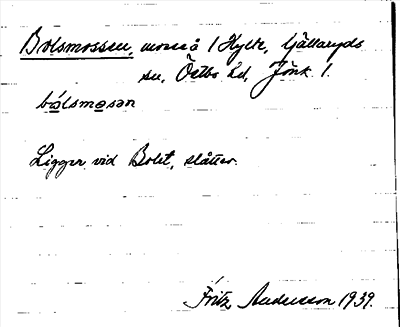 Bolsmossen, mosse å 1 Hylte, Kjällaryds
sn, Östbo hd, Jönk l.
bólsmosan
Ligger vid Bolet, slåtter.
Fritz Andersson 1939.